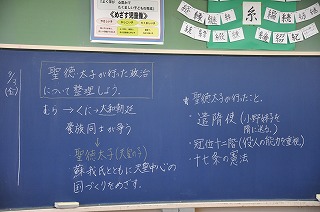 《めざす児童像》
糸
9/3
(金)
聖徳太子が行った政治
について整理しよう。
むら→くに→大和朝廷
豪族同士が争う
聖徳太子(天皇の子)
蘇我氏とともに天皇中心の
国づくりをめざす。
★聖徳太子が行たこと。
・遣隋使(小野妹子を
隋に送る。)
・冠位十二階(役人の能力を重視)
・十七条の憲法